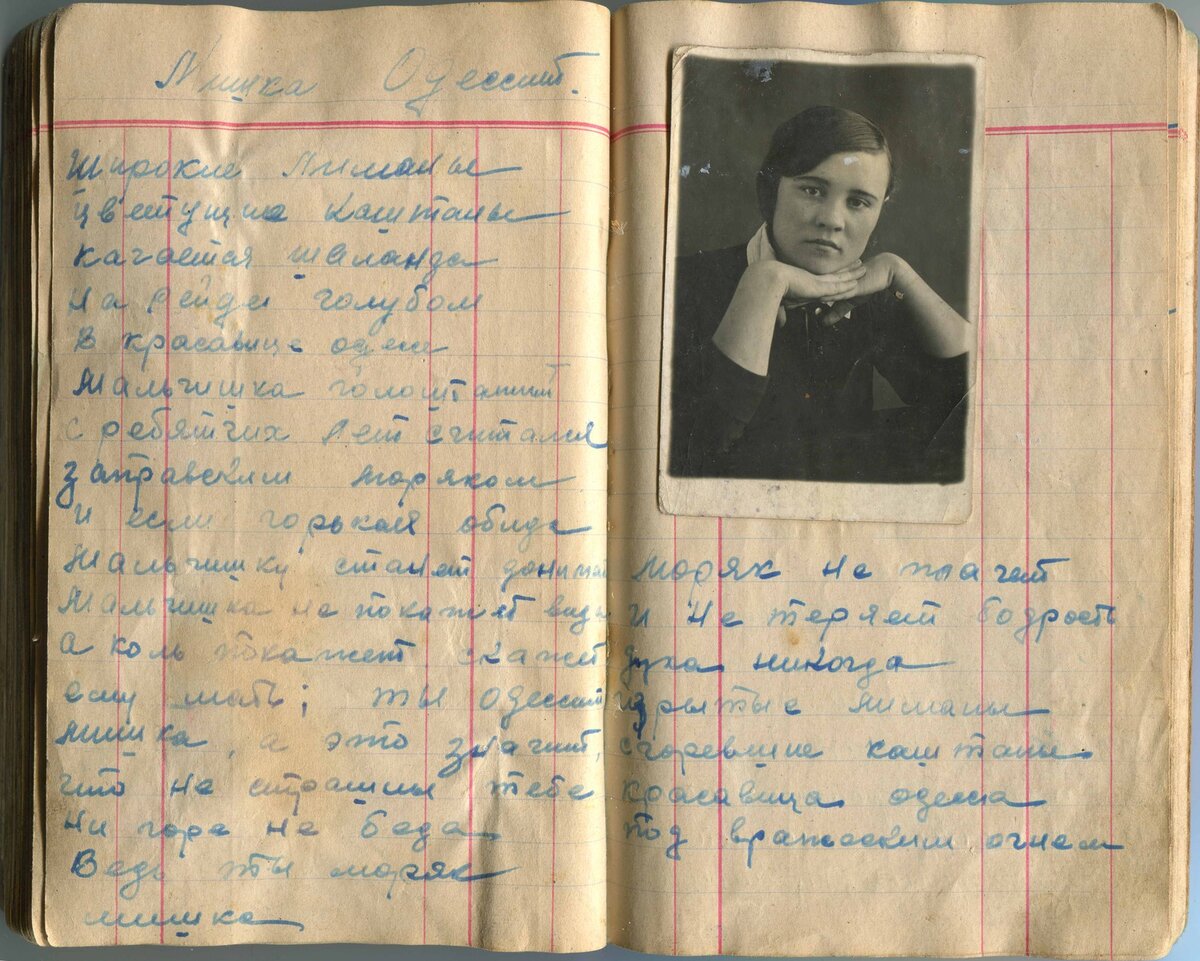 Мишка Одессит.
Широкие Лиманы
цветущие каштаны
качается шаланда
на рейде голубом
В красавице одессе
Мальчишка голоштанный
с ребятчих лет считался
заправским моряком
и если горькая обида
Мальчишку станет донимат
Мальчишка не покажет вида
а коль покажет скажет
ему мать; ты одессит
мишка, а это значит,
что не страшны тебе
ни горе не беда
Ведь ты моряк
мишка
моряк не плачет
и не теряет бодрость
духа никогда
изрытые лиманы
сгоревшие каштаны
красавица одесса
под вражеским огнем